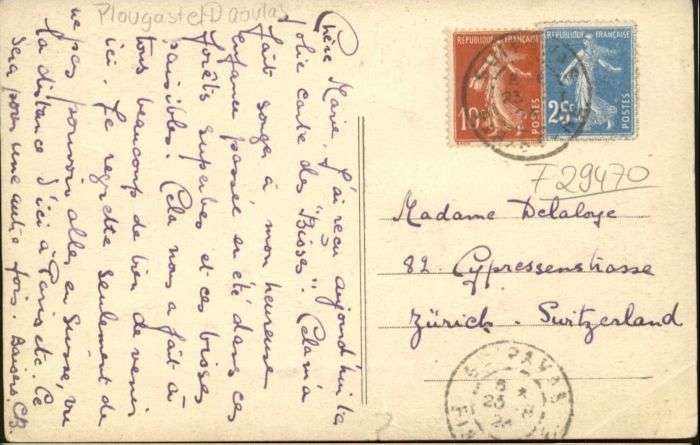 Plougastel-Daoulas
Chère Marie, J'ai reçu aujourd'hui ta
jolie carte des "Bisses". Cela m'a
fait songer à mon heureuse
enfance passée en été dans ces
forêts superbes et ces bisses
paisibles. Cela nous a fait à
tous beaucoup de bien de venir
ici. Je regrette seulement de
ne pas pouvoir aller en Suisse, vu
la distance d'ici à Paris etc. Ce
sera pour une autre fois. Baisers. CB.
REPUBLIQUE FRANÇAISE
10c
POSTES
REPUBLIQUE FRANÇAISE
25c
POSTES
F 29470
Madame Delaloye
82. Cypressenstrasse
Zürich. Switzerland
PAVAS
8
23